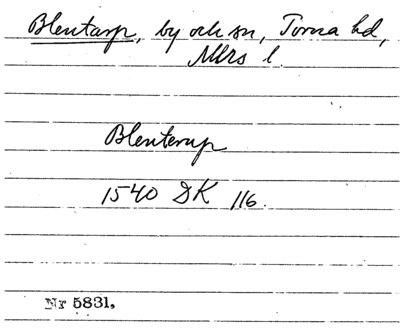 Blentarp, by och sn, Torna hd,
Mlhs l.
Blenterup
1540 DK 116.
Nr 5831.